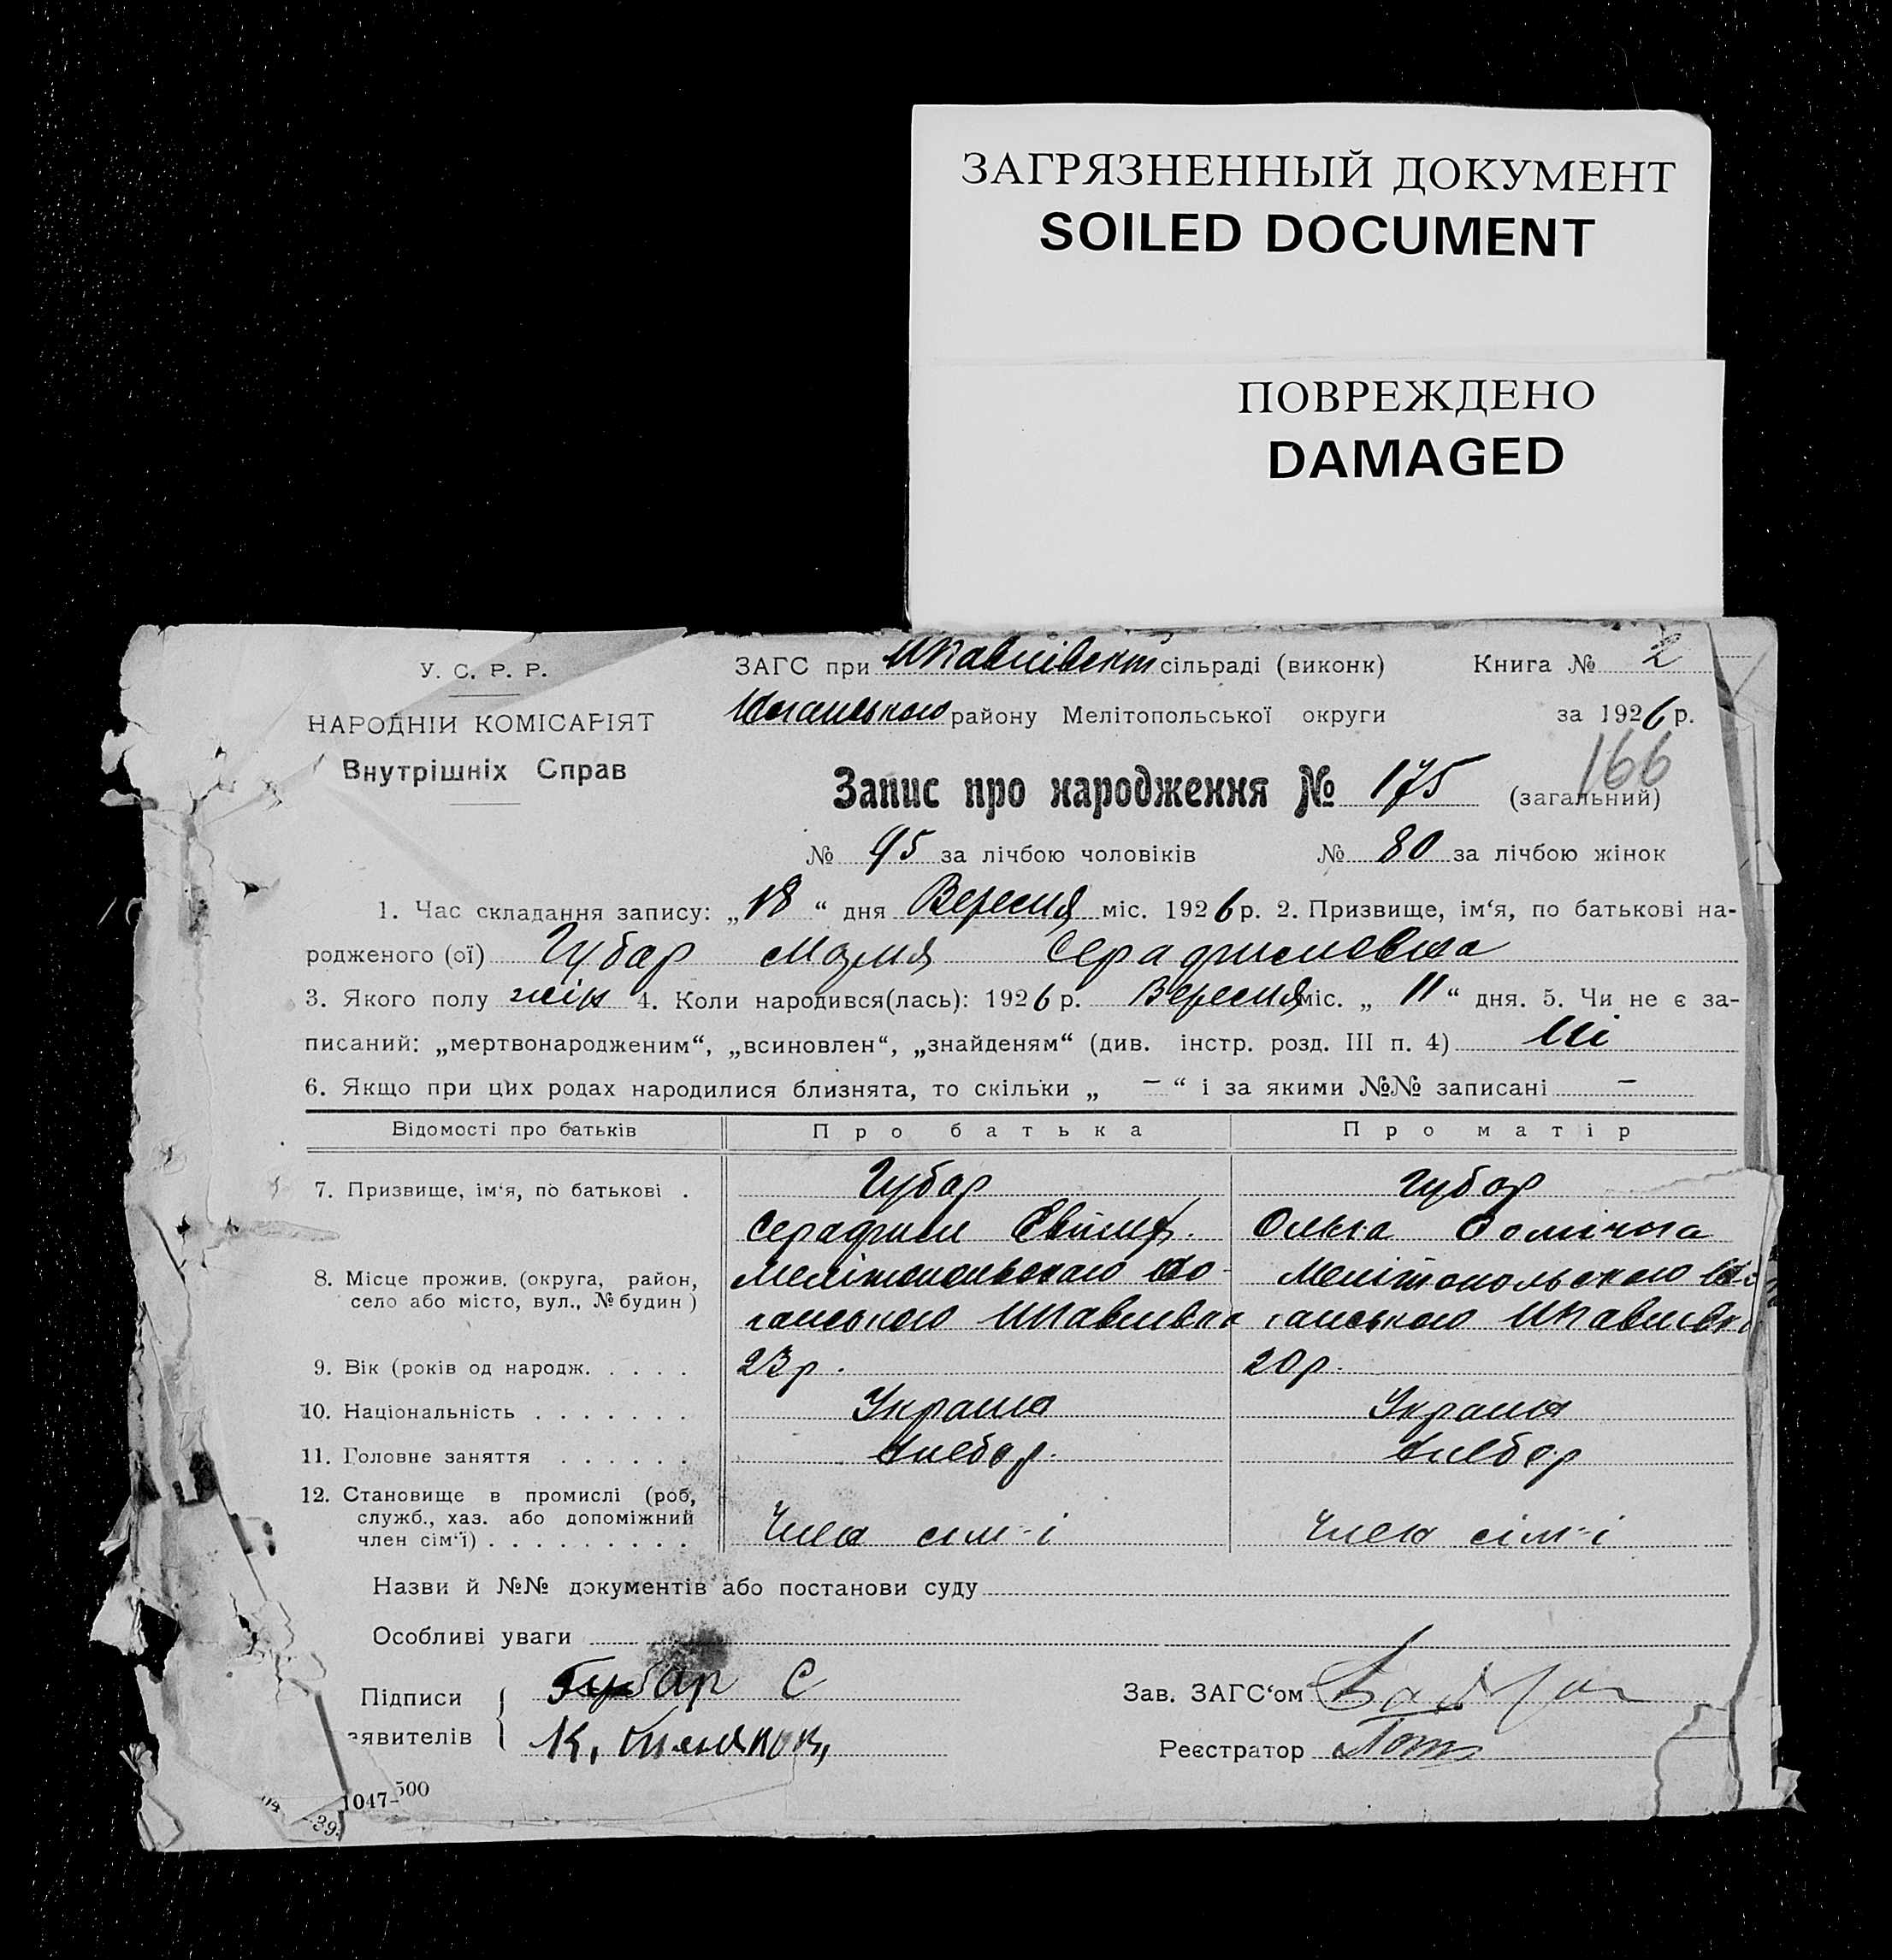 ЗАГРЯЗНЕННЫЙ ДОКУМЕНТ
SOILED DOCUMENT
ПОВРЕЖДЕНО
DAMAGED
У. С. Р. Р.
ЗАГС при сільраді (виконк) Книга № 2
НАРОДНІЙ КОМІСАРІЯТ
району Мелітопольської округи за 1926 р.
166
Внутрішніх Справ
Запис про народження № 175 (загальний)
№ 95 за лічбою чоловіків № 80 за лічбою жінок
1. Час складання запису: „18“ дня Вересня міс. 1926 р. 2. Призвище, ім‘я, по батькові на-
родженого (ої) Губар Серафимовна
3. Якого полу жін 4. Коли народився(лась): 1926 р. Вересня міс. „11“ дня. 5. Чи не є за-
писаний: „мертвонародженим“, „всиновлен“, „знайденям“ (див. інстр. розд. III п. 4) Ні
6. Якщо при цих родах народилися близнята, то скільки „ — “ і за якими №№ записані —
Відомості про батьків Про батька Про матір
7. Призвище, ім‘я, по батькові . Губар Губар
Серафим Ольга
8. Місце прожив. (округа, район, Мелітопольського Мелітопольського
село або місто, вул., № будин )
9. Вік (років од народж. . . . . 23 р. 20 р.
10. Національність . . . . . . . Україна Україна
11. Головне заняття . . . . . . Хлебор. Хлебор
12. Становище в промислі (роб,
служб., хаз. або допоміжний
член сім‘ї) . . . . . . . . . Член сім-і Член сім-і
Назви й №№ документів або постанови суду
Особливі уваги
Підписи Губар С Зав. ЗАГС‘ом
заявителів К. Реєстратор
1047-500
39.